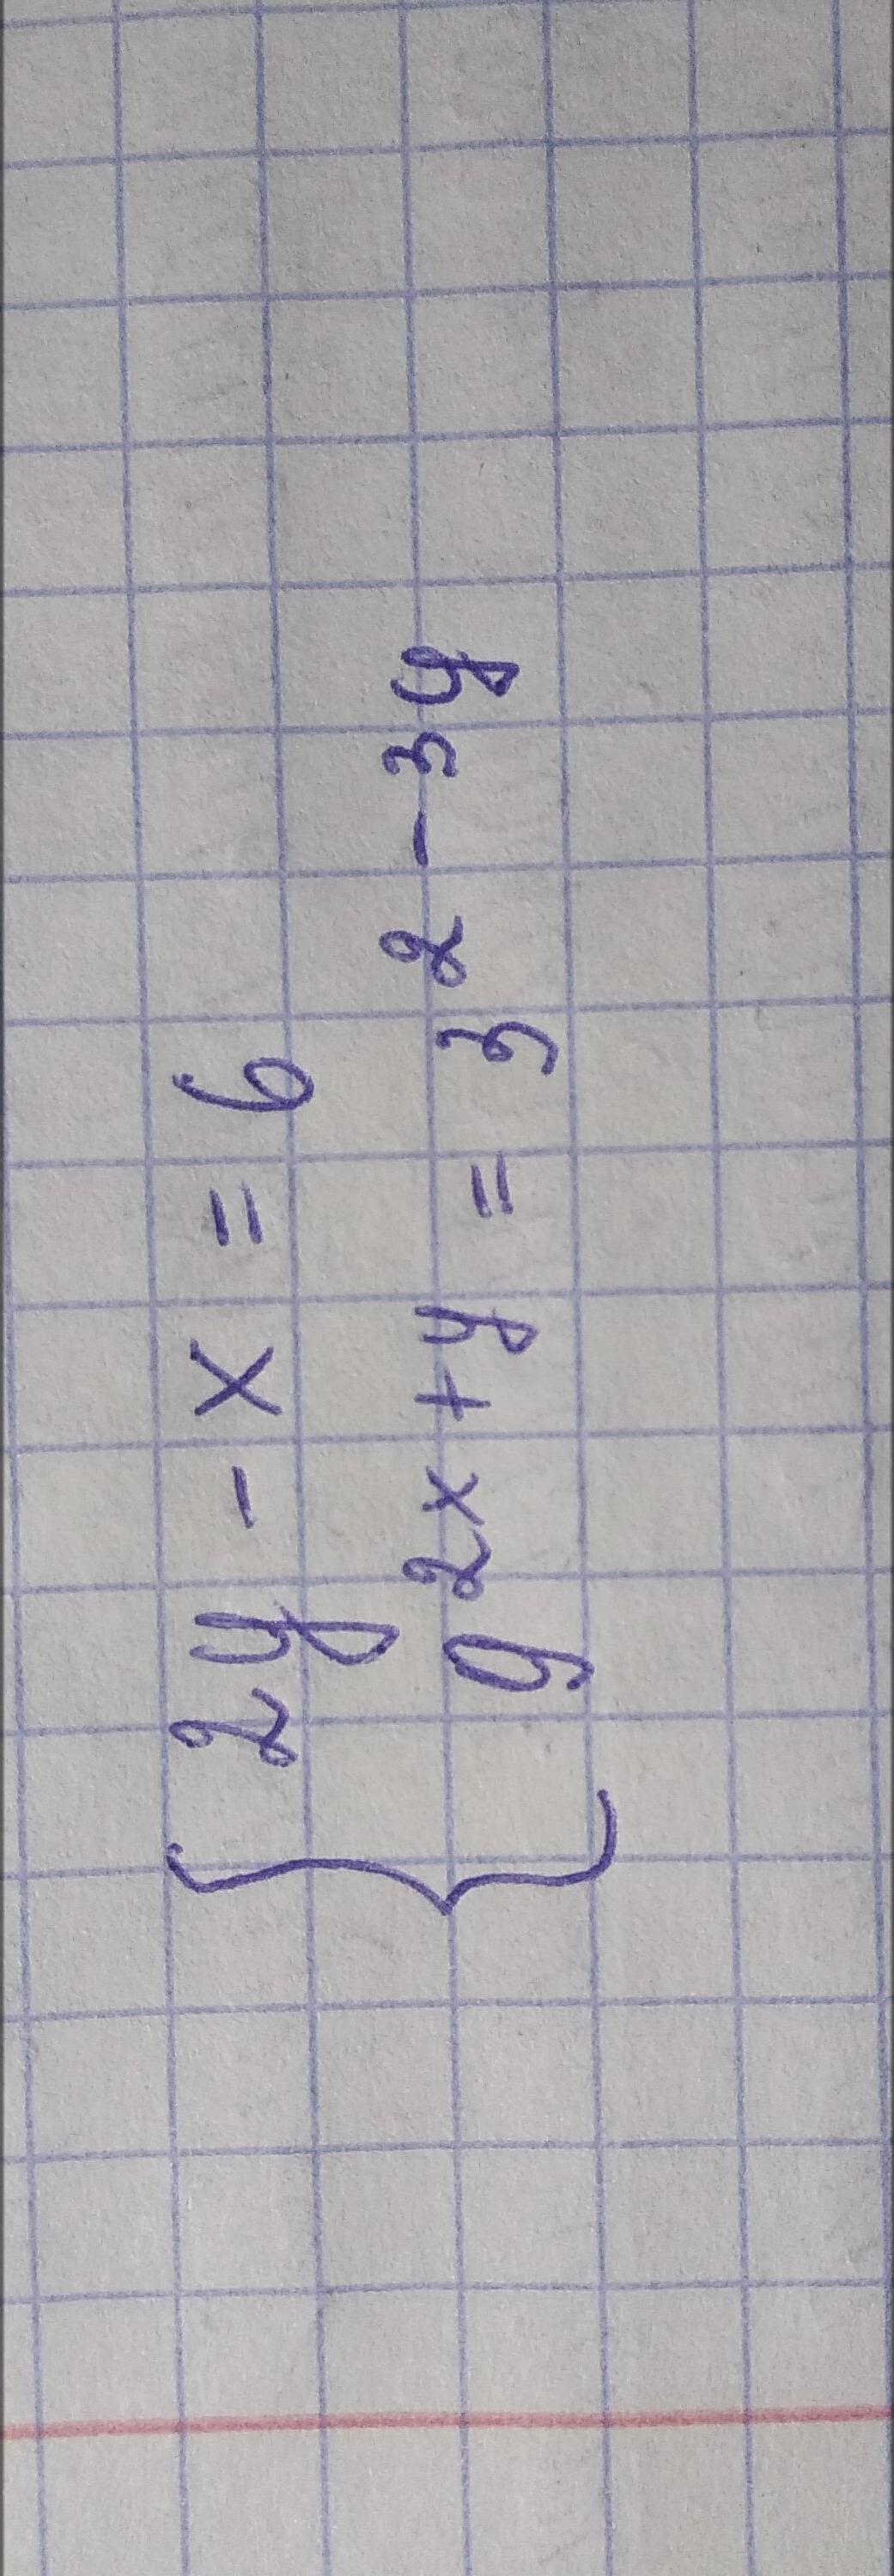 2y - x = 6
9^{2x+y} = 3^{2-3y}